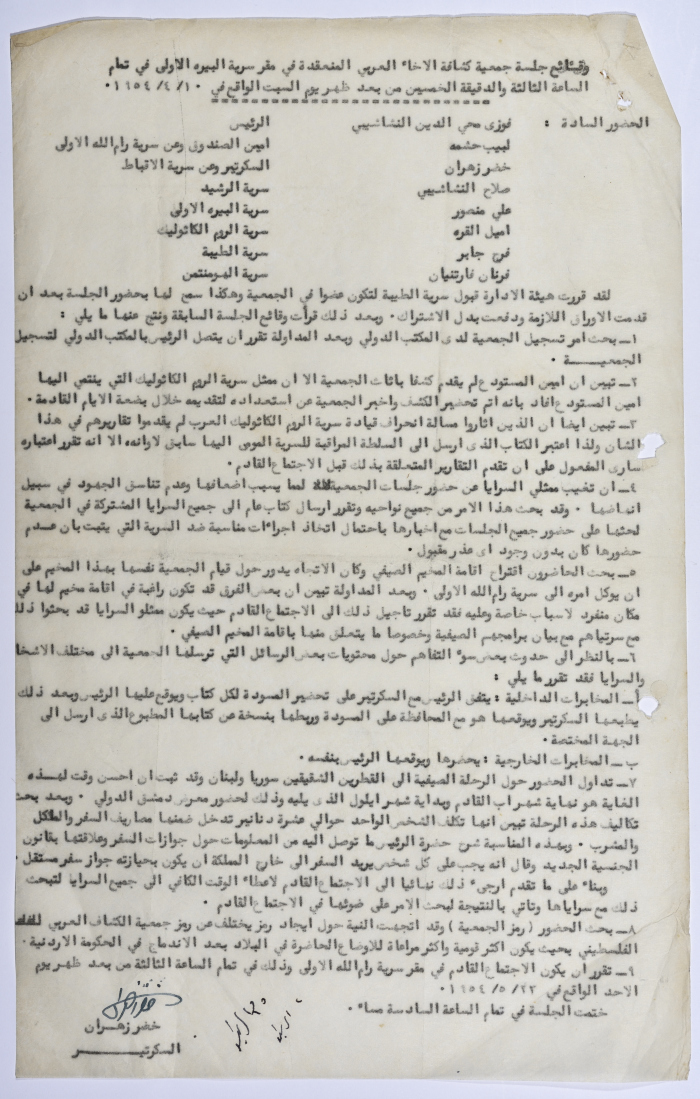 وقائع جلسة جمعية كشافة الاخاء العربي المنعقدة في مقر سرية البيره الاولى في تمام
الساعة الثالثة والدقيقة الخمسين من بعد ظهر يوم السبت الواقع في ١٠/ ٤/ ١٩٥٤ ٠
الحضور السادة : فوزى محي الدين النشاشيبي الرئيس
لبيب حشمه امين الصندوق وعن سرية رام الله الاولى
خضر زهران السكرتير وعن سرية الاقباط
صلاح النشاشيبي سرية الرشيد
علي منصور سرية البيره الاولى
اميل القره سرية الروم الكاثوليك
فرج جابر سرية الطيبة
فرنان فارتنيان سرية الهومنتمن
لقد قررت هيئة الادارة قبول سرية الطيبة لتكون عضوا في الجمعية وهكذا سمح لها بحضور الجلسة بعد ان
قدمت الاوراق اللازمة ودفعت بدل الاشتراك ٠ وبعد ذلك قرأت وقائع الجلسة السابقة ونتج عنها ما يلي :
١ــ بحث امر تسجيل الجمعية لدى المكتب الدولي وبعد المداولة تقرر ان يتصل الرئيس بالمكتب الدولي لتسجيل
الجمعيــــة ٠
٢ــ تبين ان امين المستودع لم يقدم كشفا باثاث الجمعية الا ان ممثل سرية الروم الكاثوليك التي ينتمي اليها
امين المستودع افاد بانه اتم تحضير الكشف واخبر الجمعية عن استعداده لتقديمه خلال بضعة الايام القادمة ٠
٣ــ تبين ايضا ان الذين اثاروا مسالة انحراف قيادة سرية الروم الكاثوليك العرب لم يقدموا تقاريرهم في هذا
الشان ولذا اعتبر الكتاب الذى ارسل الى السلطة المراقبة للسرية المومى اليها سابق لاوانه الا انه تقرر اعتباره
سارى المفعول على ان تقدم التقارير المتعلقة بذلك قبل الاجتماع القادم ٠
٤ــ ان تغيب ممثلي السرايا عن حضور جلسات الجمعية لمما يسبب اضعافها وعدم تناسق الجهود في سبيل
انهاضها ٠ وقد بحث هذا الامر من جميع نواحيه وتقرر ارسال كتاب عام الى جميع السرايا المشتركة في الجمعية
لحثها على حضور جميع الجلسات مع اخبارها باحتمال اتخاذ اجراءات مناسبة ضد السرية التي يثبت بان عدم
حضورها كان بدون وجود اى عذر مقبول ٠
٥ــ بحث الحاضرون اقتراح اقامة المخيم الصيفي وكان الاتجاه يدور حول قيام الجمعية نفسها بهذا المخيم على
ان يوكل امره الى سرية رام الله الاولى ٠ وبعد المداولة تبين ان بعض الفرق قد تكون راغبة في اقامة مخيم لها في
مكان منفرد لاسباب خاصة وعليه فقد تقرر تاجيل ذلك الى الاجتماع القادم حيث يكون ممثلو السرايا قد بحثوا ذلك
مع سرتياهم مع بيان برامجهم الصيفية وخصوصا ما يتعلق منها باقامة المخيم الصيفي ٠
٦ــ بالنظر الى حدوث بعض سوء التفاهم حول محتويات بعض الرسائل التي ترسلها الجمعية الى مختلف
والسرايا فقد تقرر ما يلي :
أــ المخابرات الداخلية : يتفق الرئيس مع السكرتير على تحضير المسودة لكل كتاب ويوقع عليها الرئيس وبعد ذلك
يطبعها السكرتير ويوقعها هو مع المحافظة على المسودة وربطها بنسخة عن كتابها المطبوع الذى ارسل الى
الجهة المختصة ٠
ب ــ المخابرات الخارجية : يحضرها ويوقعها الرئيس بنفسه ٠
٧ــ تداول الحضور حول الرحلة الصيفية الى القطرين الشقيقين سوريا ولبنان وقد ثبت ان احسن وقت لهــذه
الغاية هو نهاية شهر اب القادم وبداية شهر ايلول الذى يليه وذلك لحضور معرض دمشق الدولي ٠ وبعد بحث
تكاليف هذه الرحلة تبين انها تكلف الشخص الواحد حوالي عشرة دنانير تدخل ضمنها مصاريف السفر والماكل
والمشرب ٠ وبهذه المناسبة شرح حضرة الرئيس ما توصل اليه من المعلومات حول جوازات السفر وعلاقتها بقانون
الجنسية الجديد وقال انه يجب على كل شخص يريد السفر الى خارج المملكة ان يكون بحيازته جواز سفر مستقل ٠
وبناء على ما تقدم ارجىء ذلك نهائيا الى الاجتماع القادم لاعطاء الوقت الكافي الى جميع السرايا لتبحث
ذلك مع سراياها وتاتي بالنتيجة لبحث الامر على ضوئها في الاجتماع القادم ٠
٨ــ بحث الحضور ( رمز الجمعية ) وقد اتجهت النية حول ايجاد رمز يختلف عن رمز جمعية الكشاف العربي
الفلسطيني بحيث يكون اكثر قومية واكثر مراعاة للاوضاع الحاضرة في البلاد بعد الاندماج في الحكومة الاردنية ٠
٩ــ تقرر ان يكون الاجتماع القادم في مقر سرية رام الله الاولى وذلك في تمام الساعة الثالثة من بعد ظهر يوم
الاحد الواقع في ٢٣/ ٥/ ١٩٥٤ ٠
ختمت الجلسة في تمام الساعة السادسة مساء ٠
خضر زهــران
السكرتيــــر